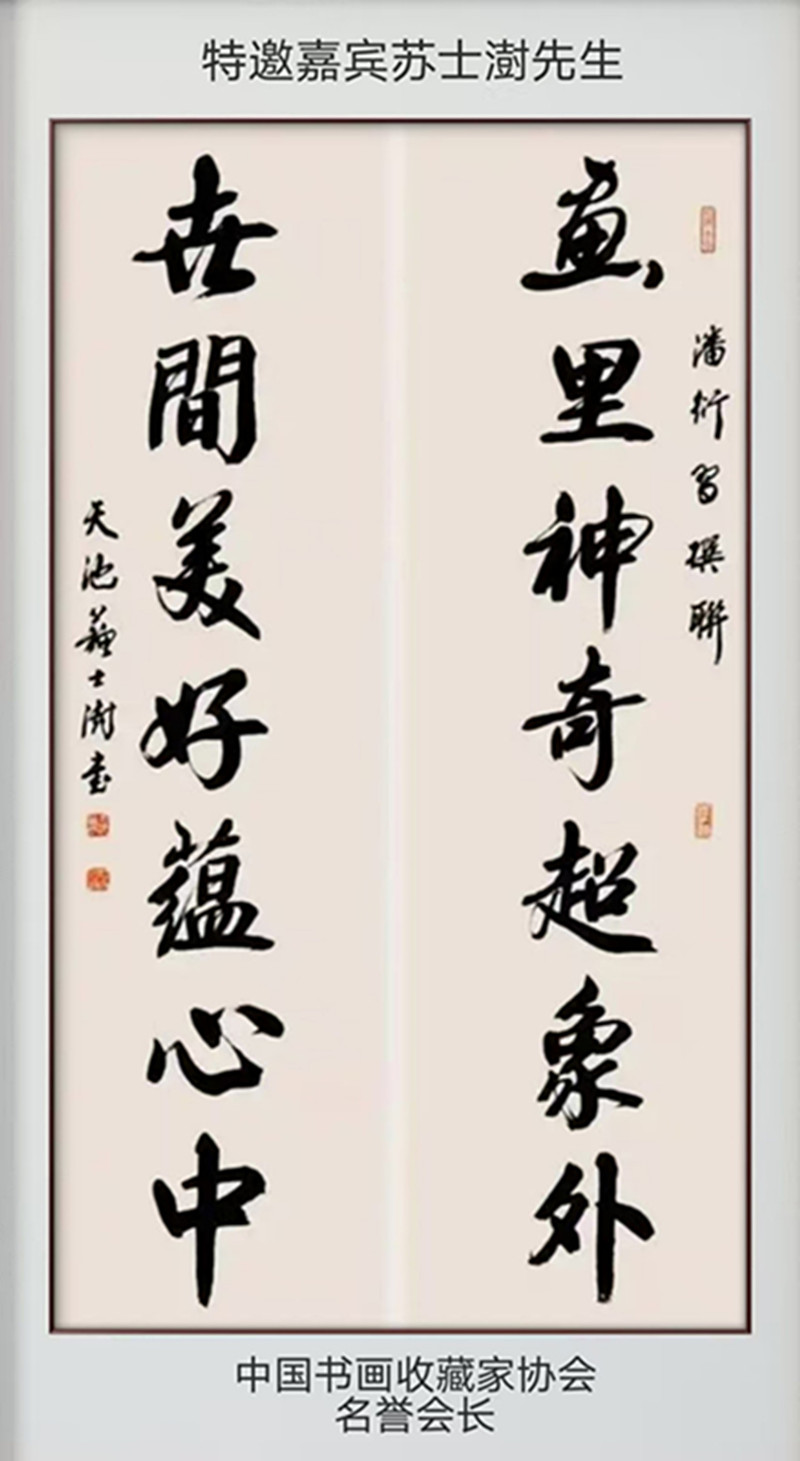 特邀嘉宾苏士澍先生
潘衍習撰聯
畫里神奇超象外
世間美好蕴心中
天池蘇士澍書
中国书画收藏家协会
名誉会长